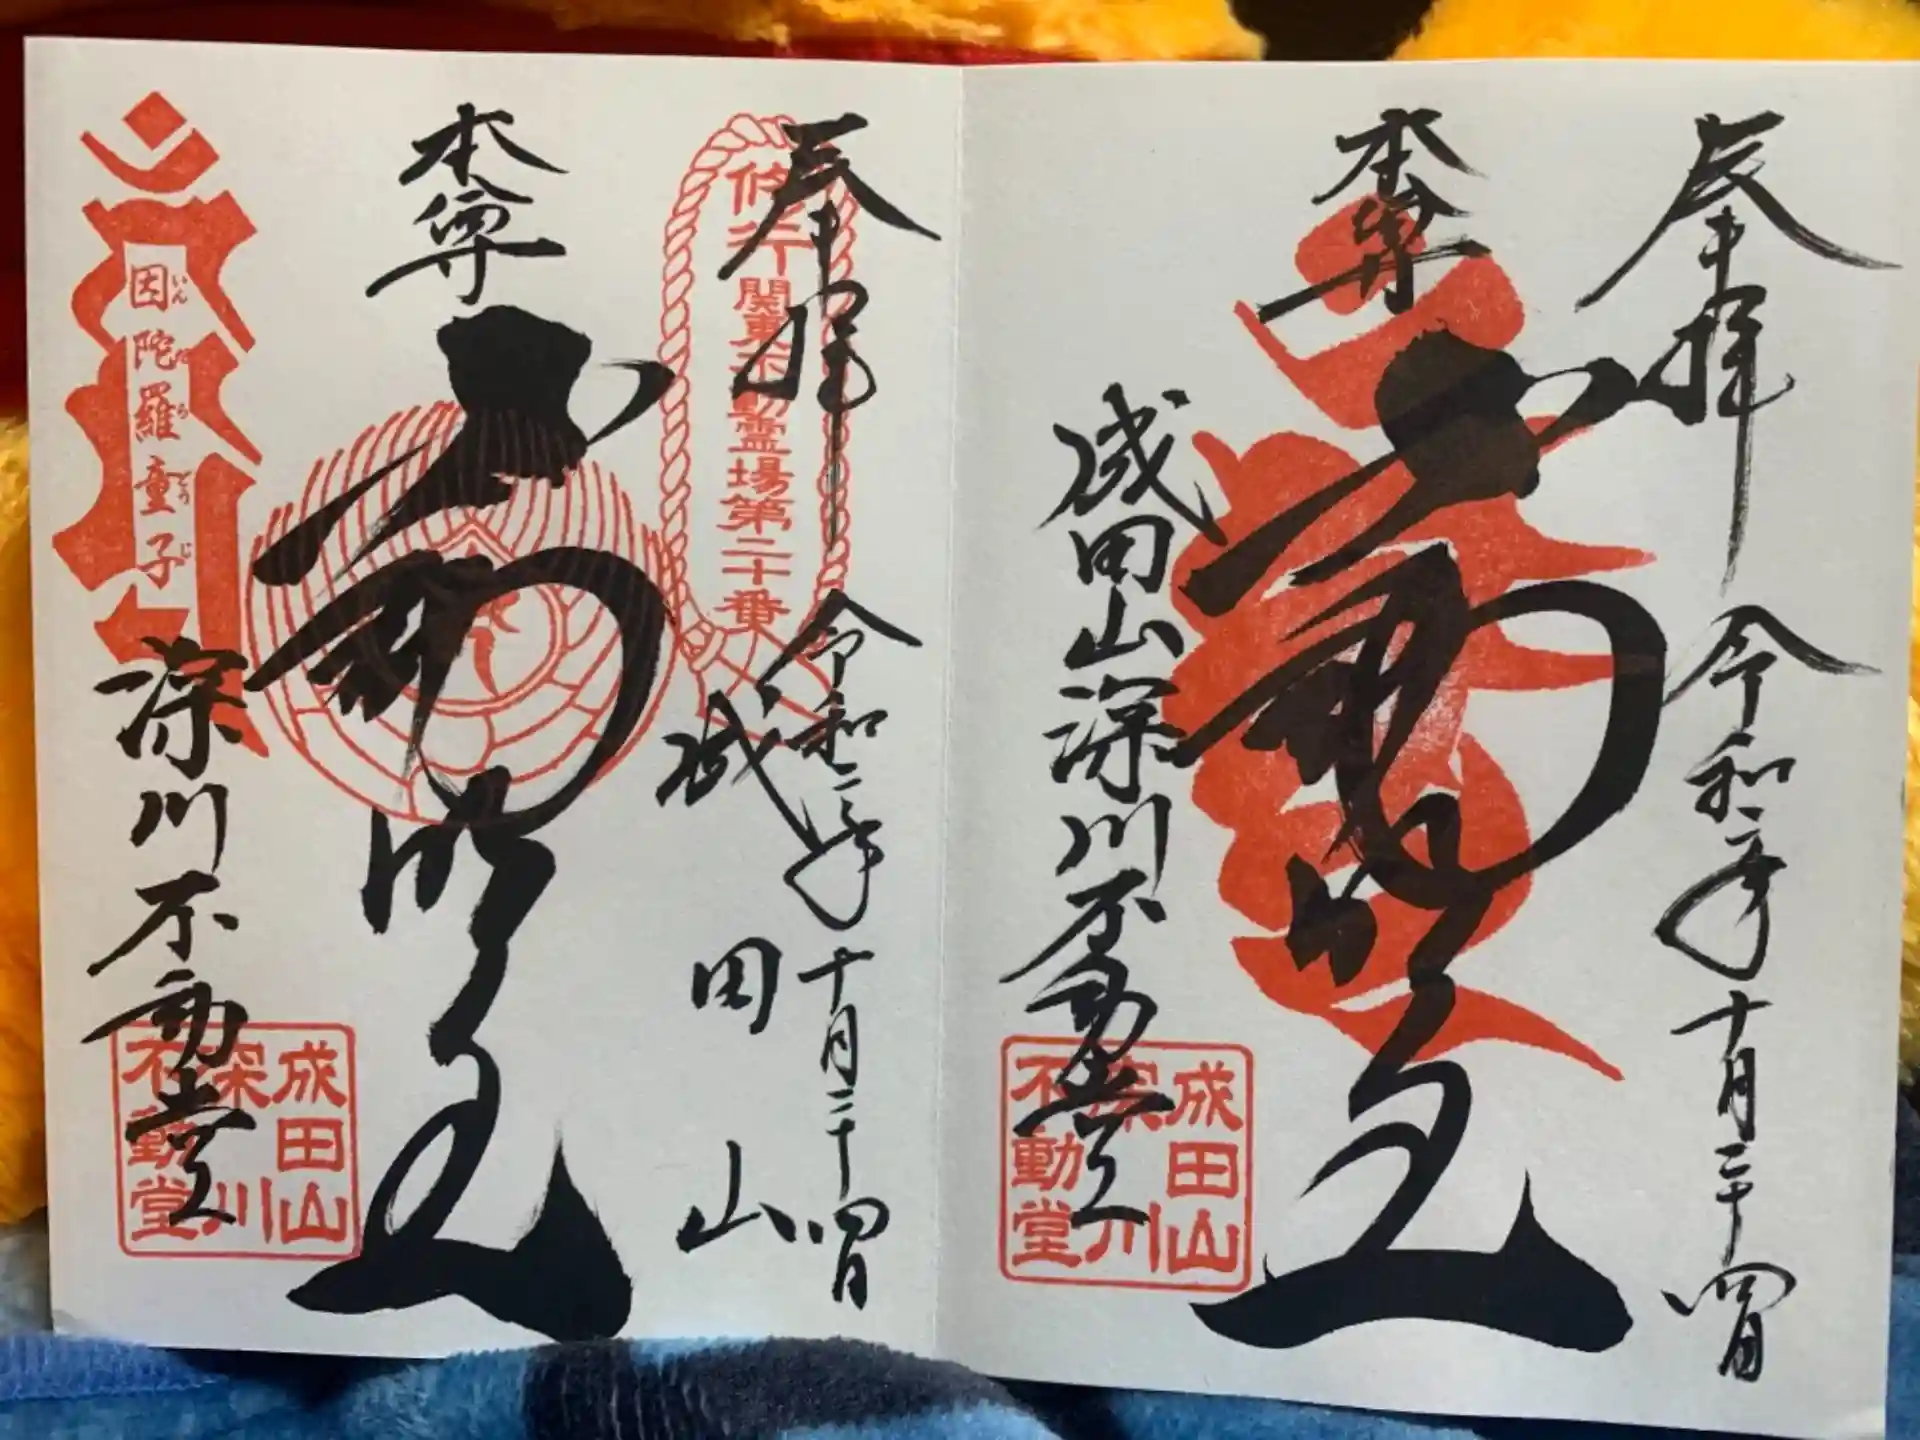 奉拝
令和二年十月二十四日
本尊
不動明王
成田山深川不動堂
成田山
深川
不動堂
奉拝
令和二年十月二十四日
修行関東不動霊場第二十番
成田山
本尊
不動明王
深川不動堂
因陀羅童子
いんだらどうじ
成田山
深川
不動堂